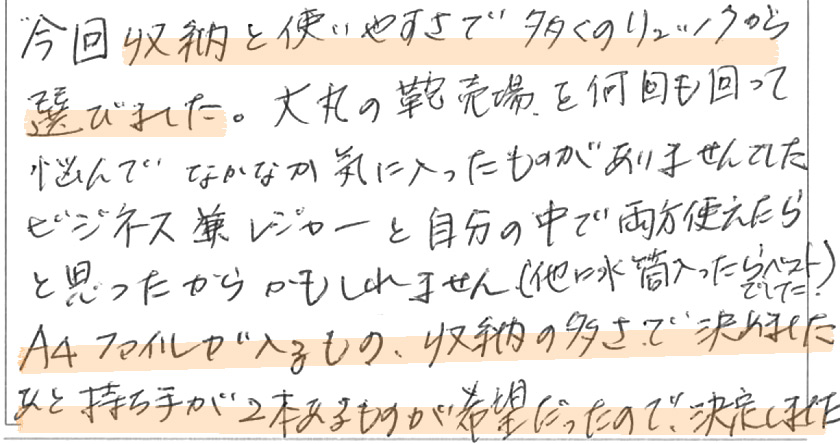 今回収納と使いやすさで多くのリュックから
選びました。大丸の鞄売場を何回も回って
悩んでなかなか気に入ったものがありませんでした
ビジネス兼レジャーと自分の中で両方使えたら
と思ったからかもしれません(他に水筒入ったらベスト
でした!)
A4ファイルが入るもの、収納の多さで決めました
あと持ち手が2本あるものが希望だったので、決定しました